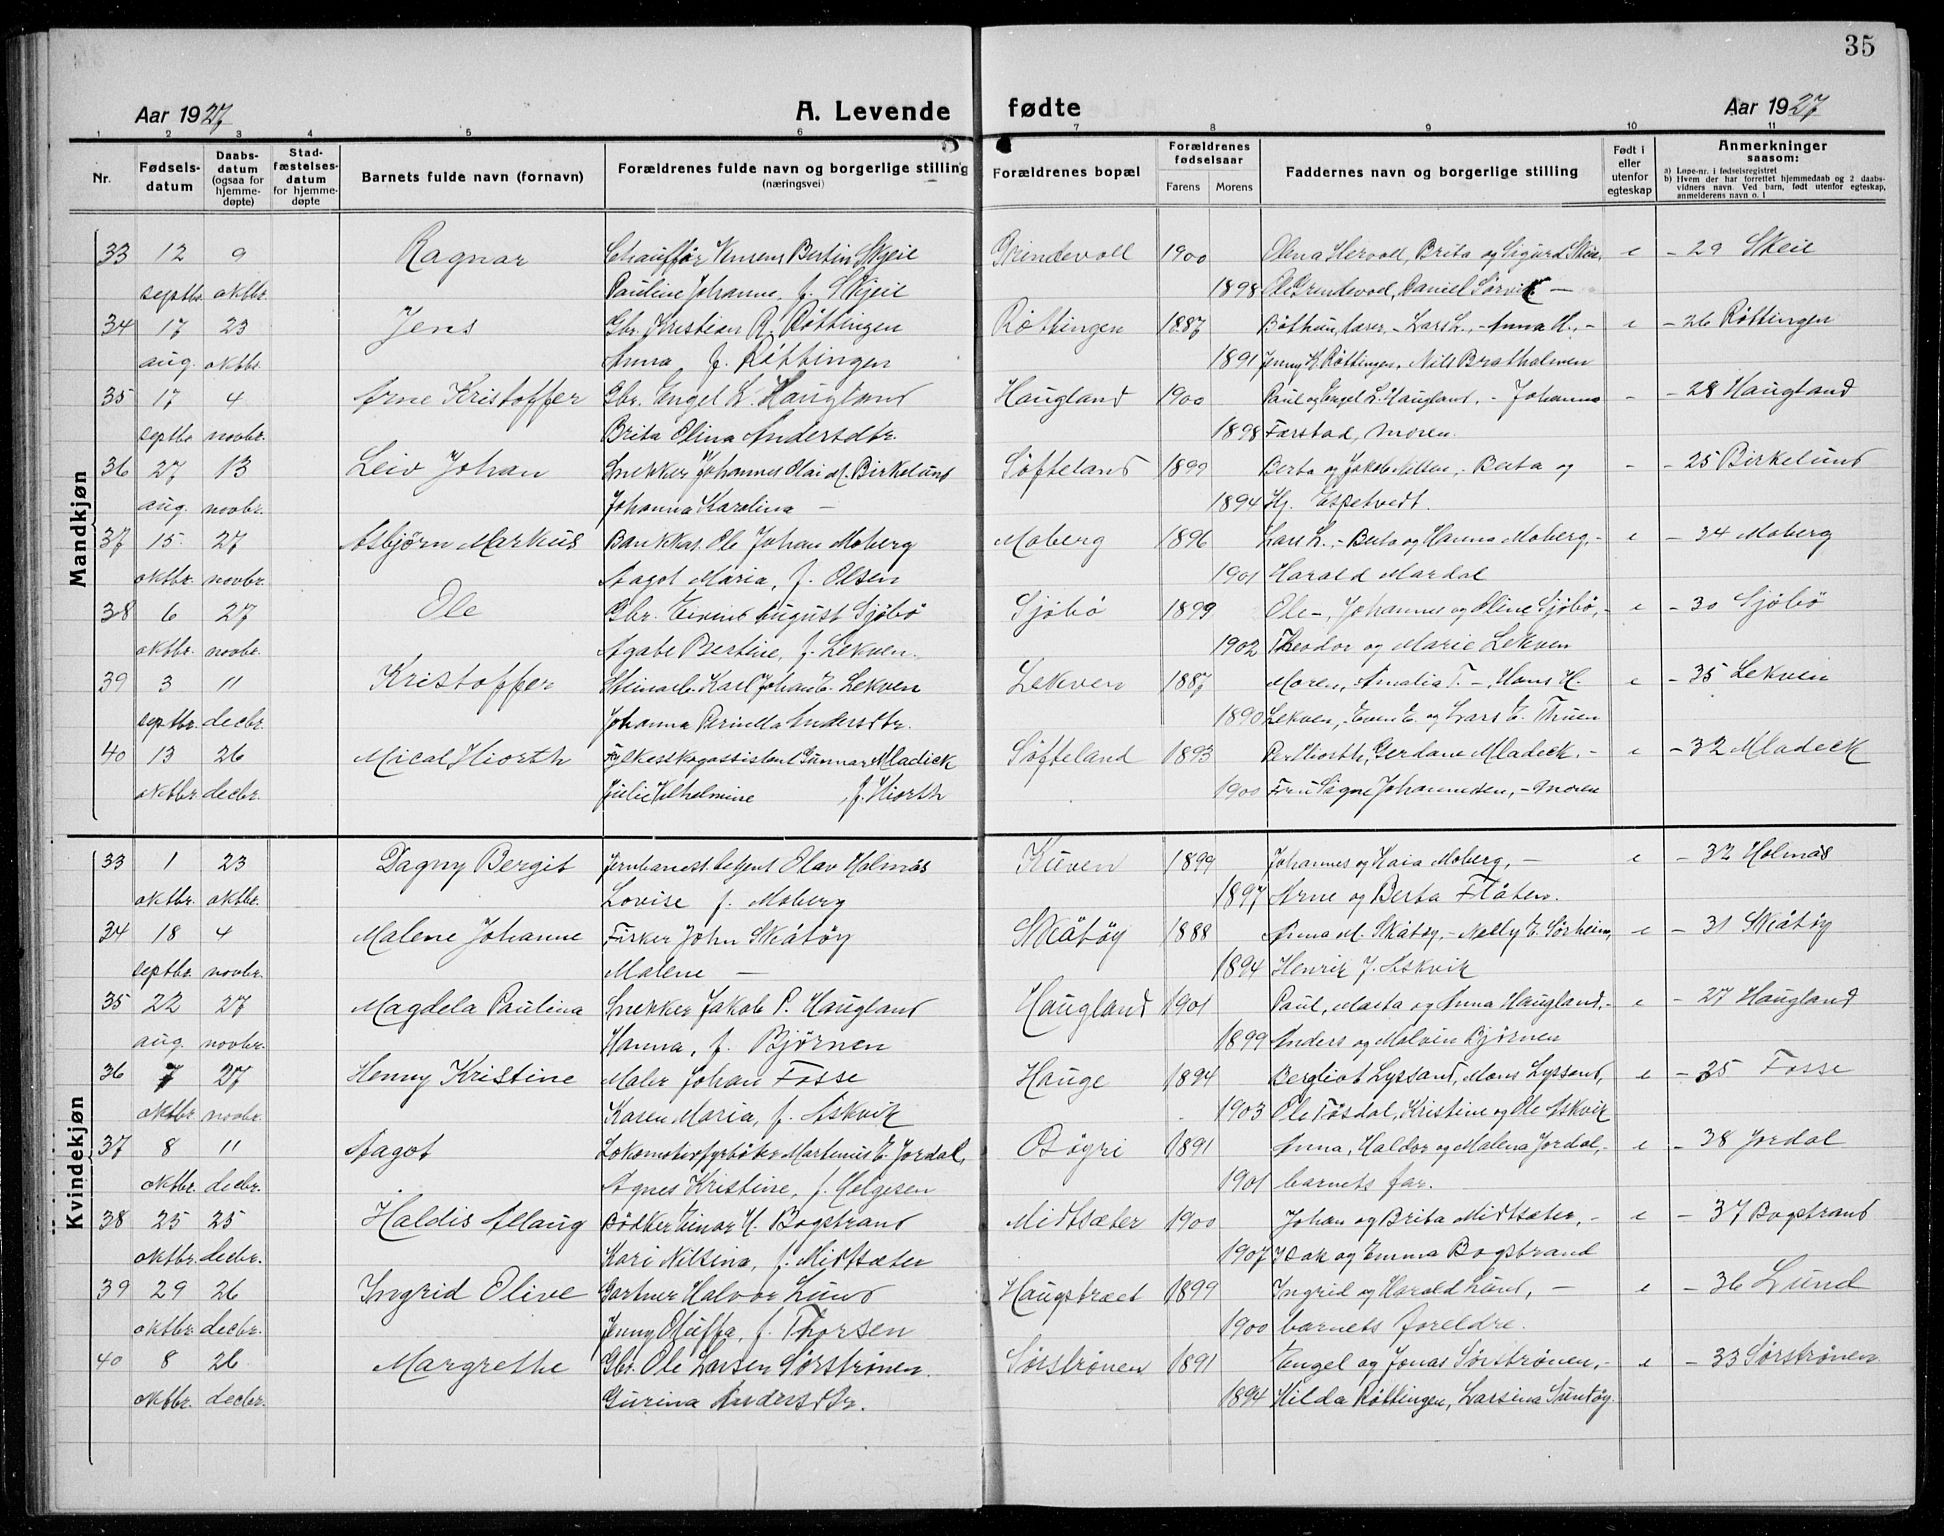 35
Aar 1927 A. Levende fødte Aar 1927
1 2 3 4 5 6 7 8 9 10 11
Nr. Fødsels-datum Daabs-datum (ogsaa for hjemme-døpte) Stad-fæstelses-datum for hjemme-døpte Barnets fulde navn (fornavn) Forældrenes fulde navn og borgerlige stilling (næringsvei) Forældrenes bopæl Forældrenes fødselsaar Farens Morens Faddernes navn og borgerlige stilling Født i eller utenfor egteskap Anmerkninger saasom: a) Løpe-nr. i fødselsregistret b) Hvem der har forrettet hjemmedaab og 2 daabs-vidners navn. Ved barn, født utenfor egteskap, anmelderens navn o. l
Mandkjøn
33 12 9 Ragnar Chauffør Bertin Skjeie Grindevoll 1900 Olina Hervol, Brita og Sigurd Skeie, e - 29 Skeie
septbr. oktbr. Pauline Johanne, f. Skjeie 1898 Ole Grendevod, Daniel Sørvik —
34 17 23 Jens Gbr. Kristian R. Røttingen Røttingen 1887 Lars L., - Anna K., - e - 26 Røttingen
aug. oktbr. Anna f. Røttingen 1891 Jenny K Røttingen, Nils Bratholmen
35 17 4 Arne Kristoffer Gbr. Engel L. Haugland Haugland 1900 Paul og Engel L. Haugland, - Johanna - - 28 Haugland
septbr novbr. Brita Olina Andersdtr. 1898 Færstad, moren.
36 27 13 Leiv Johan Snekker Johannes Olai M. Birkelund Søfteland 1899 Berta og Jakob Nilsen, Berta og - - 25 Birkelund
aug. novbr. Johanna Karolina — 1894 Hj. Espetvedt.
37 15 27 Asbjørn Markus Bankkas. Ole Johan Moberg Moberg 1896 Lars L., - Berta og Hanna Moberg, - e - 34 Moberg
oktbr. novbr. Aagot Maria, f. Olsen 1901 Harald Mardal
38 6 27 Ole Gbr. Eivind August Sjøbø Sjøbø 1899 Ole -, Johannes og Oline Sjøbø, - e - 30 Sjøbø
oktbr. novbr. Agate Bertine, f. Lekven. 1902 Theodor og Marie Lekven
39 3 11 Kristoffer Steinarb. Karl Johan E. Lekven Lekven 1887 Moren, Amalia T. -, Hans H. e - 35 Lekven
septbr. decbr. Johanna Pernella Andersdtr. 1890 Lekven, Even E. og Lars E. Thuen
40 13 26 Mical Hiorth Fylkesskogassistent Gunnar Mladeck Søfteland 1893 Per Hiorth, Gerdane Mladeck, - e - 32 Mladeck
oktbr. decbr. Julie Vilhelmine f. Hiorth 1900 Fru Signe Johannesen, - Moren
Kvindekjøn
33 1 23 Dagny Bergit Jernbanest. betjent Olav Holmås Kuven 1899 Johannes og Kaia Moberg, — e - 32 Holmås
oktbr. oktbr. Lovise f. Moberg 1897 Arne og Berta Flåten.
34 18 4 Malene Johanne Fisker John Skåtøy Skåtøy 1888 Anna M. Skåtøy, - Nelly E. Sørheim, e - 31 Skåtøy
septbr. novbr. Malene — 1894 Henrik J. Askvik
35 22 27 Magdela Paulina Snekker Jakob P. Haugland Haugland 1901 Paul, Marta og Anna Haugland, - e - 27 Haugland
aug. novbr. Hanna, f. Bjørnen 1899 Anders og Malvin Bjørnen
36 7 27 Henny Kristine Maler Johan Fosse Hauge 1894 Bergliot Lyssand, Mons Lyssand, e - 25 Fosse
oktbr. novbr. Karen Maria, f. Askvik 1903 Ole Tøsdal, Kristine og Ole Askvik
37 8 11 Aagot Lokomotivfyrbøter Martenius E. Jordal, Osøyri 1891 Anna, Haldor og Malena Jordal, - e - 38 Jordal
oktbr. decbr. Agnes Kristine, f. Helgesen 1901 barnets far.
38 25 25 Haldis Allaug Bødker Einar H. Bogstrand Midtsæter 1900 Johan og Brita Midtsæter, - e - 37 Bogstrand
oktbr. decbr. Kari Nilsina, f. Midtsæter 1907 Isak og Emma Bogstrand
39 29 26 Ingrid Olive Gartner Halvor Lund Haugstræet 1899 Ingrid og Harald Lund, — e - 36 Lund
oktbr. decbr. Jenny Oluffa, f. Thorsen 1900 barnets foreldre.
40 8 26 Margrethe Gbr. Ole Larsen Sørstrønen. Sørstrønen 1891 Engel og Jonas Sørstrønen, - e - 33 Sørstrønen
oktbr. decbr. Gurina Andersdtr. 1894 Hilda Røttingen, Larsina Sundøy.